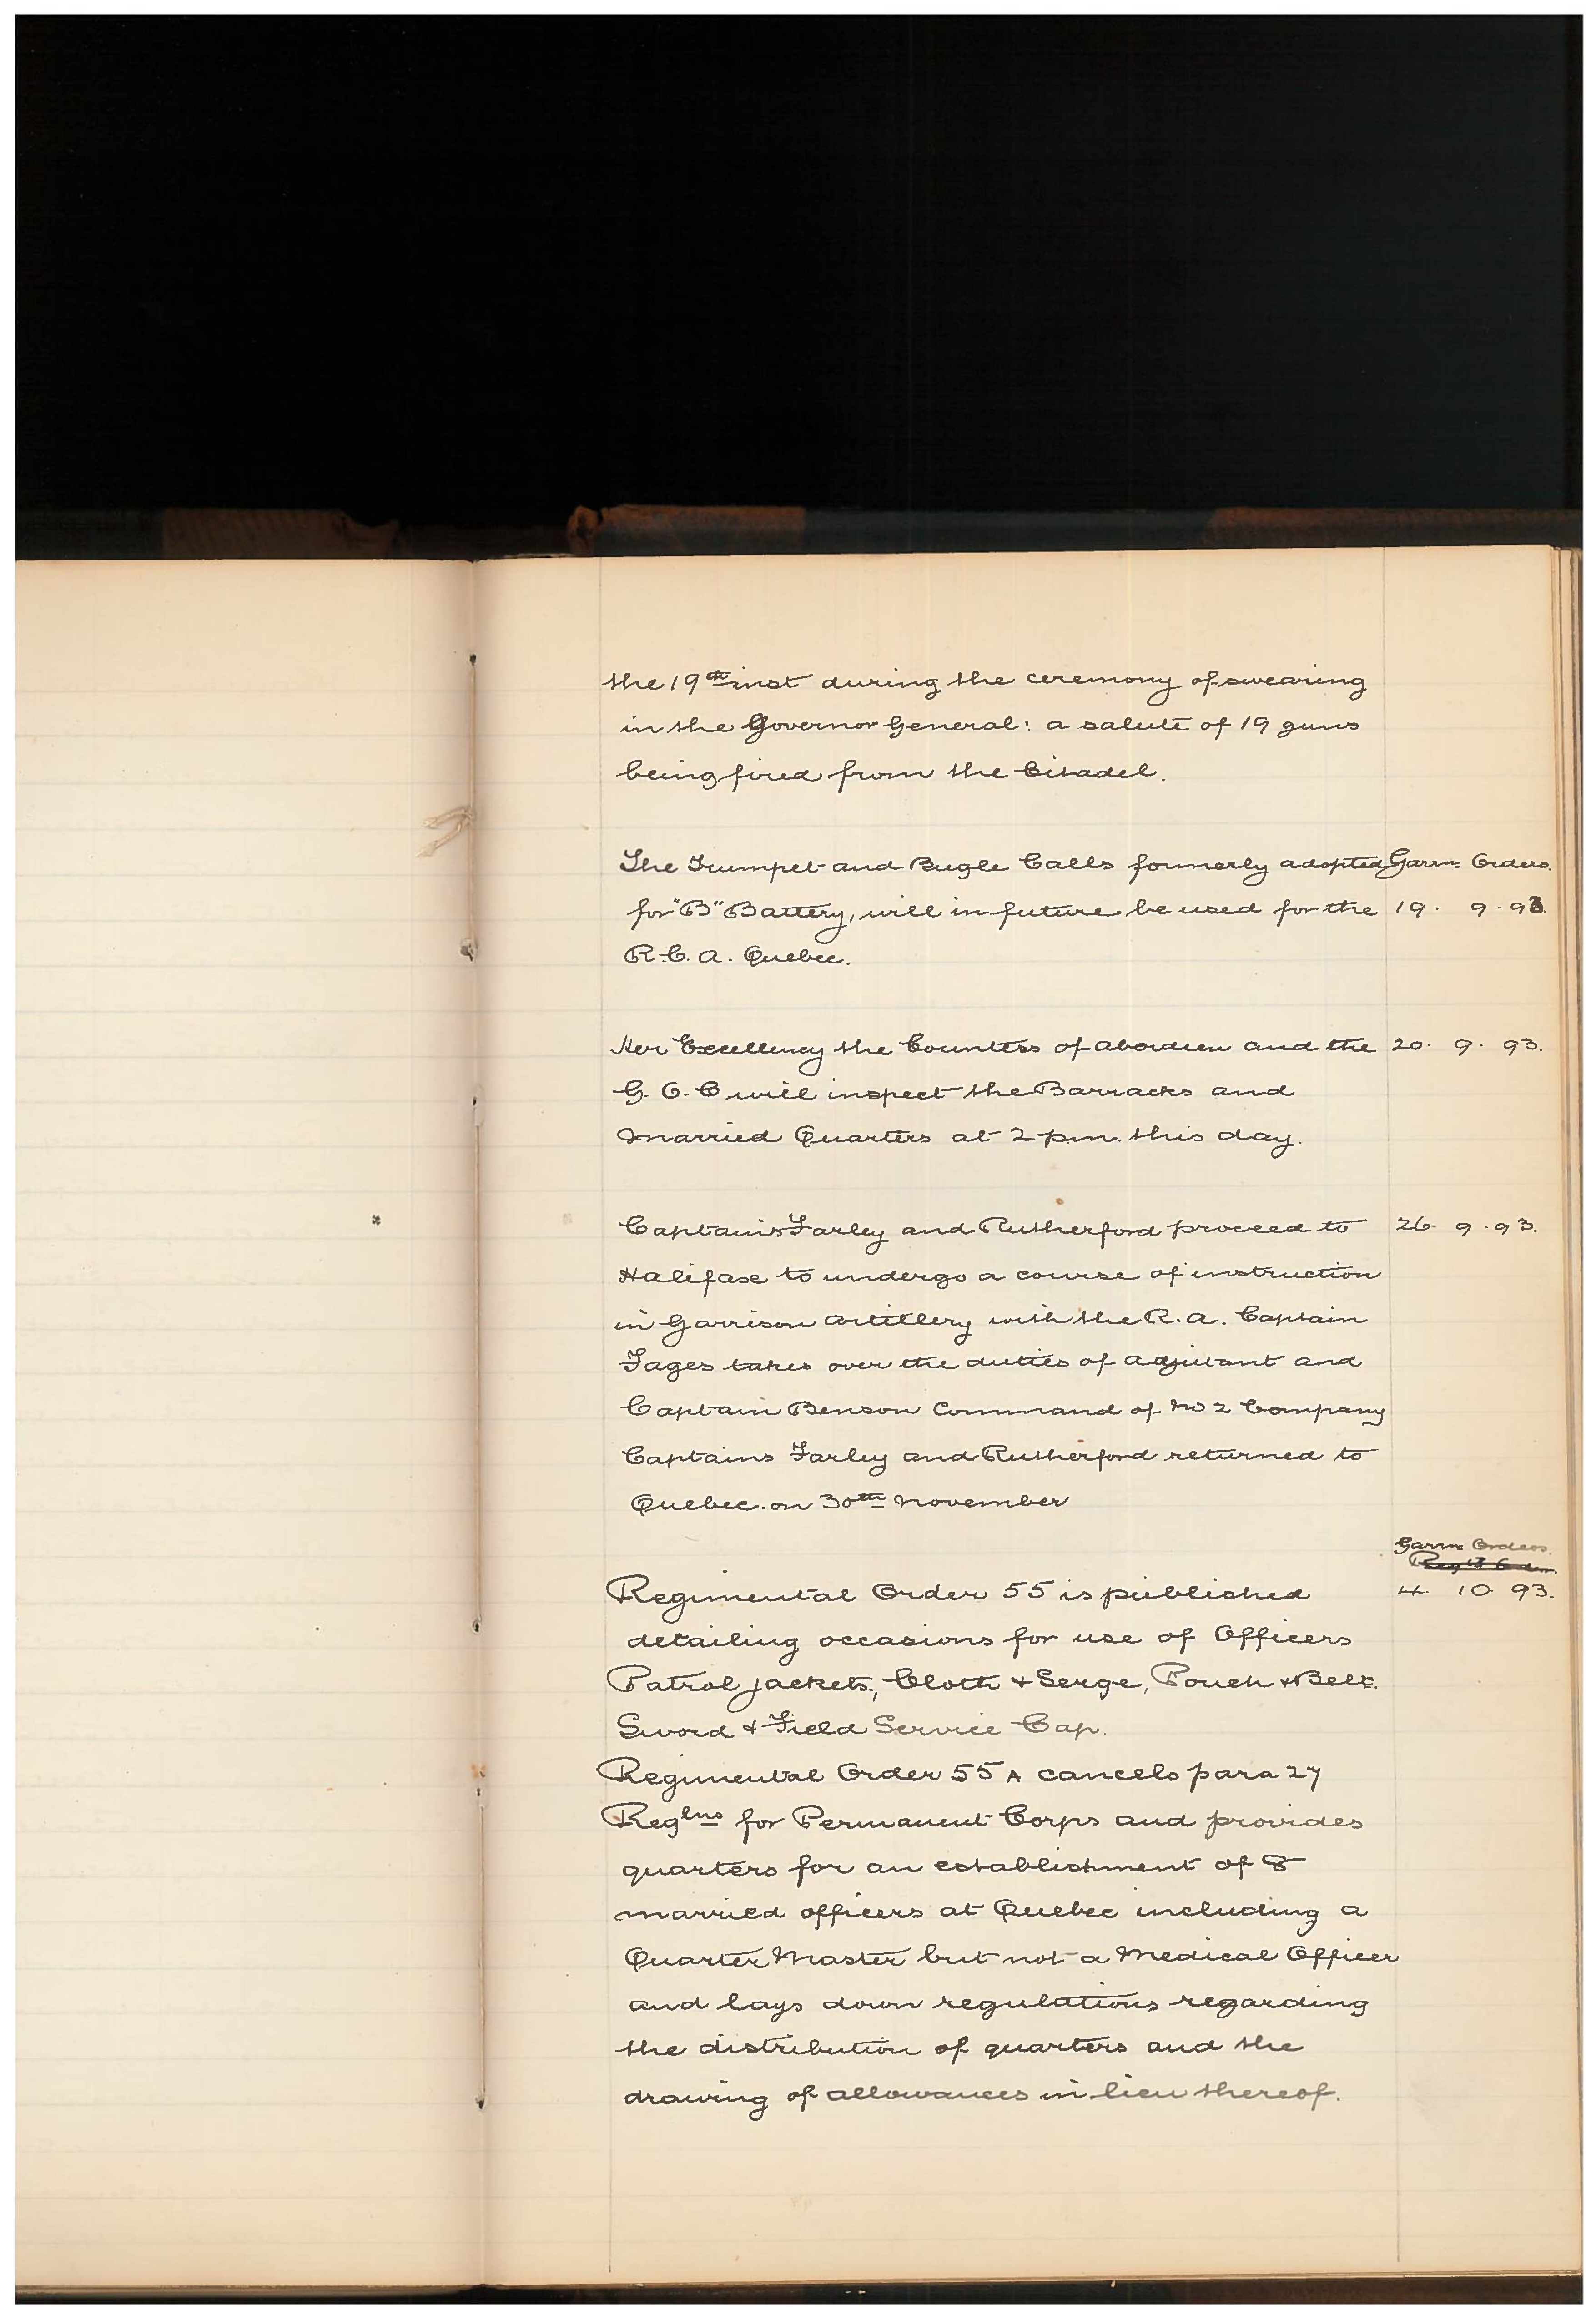 the 19th inst during the ceremony of swearing
in the Governor General: a salute of 19 guns
being fired from the Citadel.
The Trumpet and Bugle Calls formerly adopted Garrn Orders.
for "B" Battery, will in future be used for the 19. 9. 93.
R.C.A. Quebec.
Her Excellency the Countess of Aberdeen and the 20. 9. 93.
G.O.C will inspect the Barracks and
Married Quarters at 2 p.m. this day.
Captains Farley and Rutherford proceed to 26. 9. 93.
Halifax to undergo a course of instruction
in Garrison Artillery with the R.A. Captain
Fages takes over the duties of Adjutant and
Captain Benson Command of No 2 Company
Captains Farley and Rutherford returned to
Quebec. on 30th November
Garrn Orders.
Regimental Order 55 is published 4. 10. 93.
detailing occasions for use of Officers
Patrol jackets, Cloth & Serge, Pouch & Belt.
Sword & Field Service Cap.
Regimental Order 55A cancels para 27
Reglns for Permanent Corps and provides
quarters for an establishment of 8
married officers at Quebec including a
Quarter Master but not a Medical Officer
and lays down regulations regarding
the distribution of quarters and the
drawing of allowances in lieu thereof.